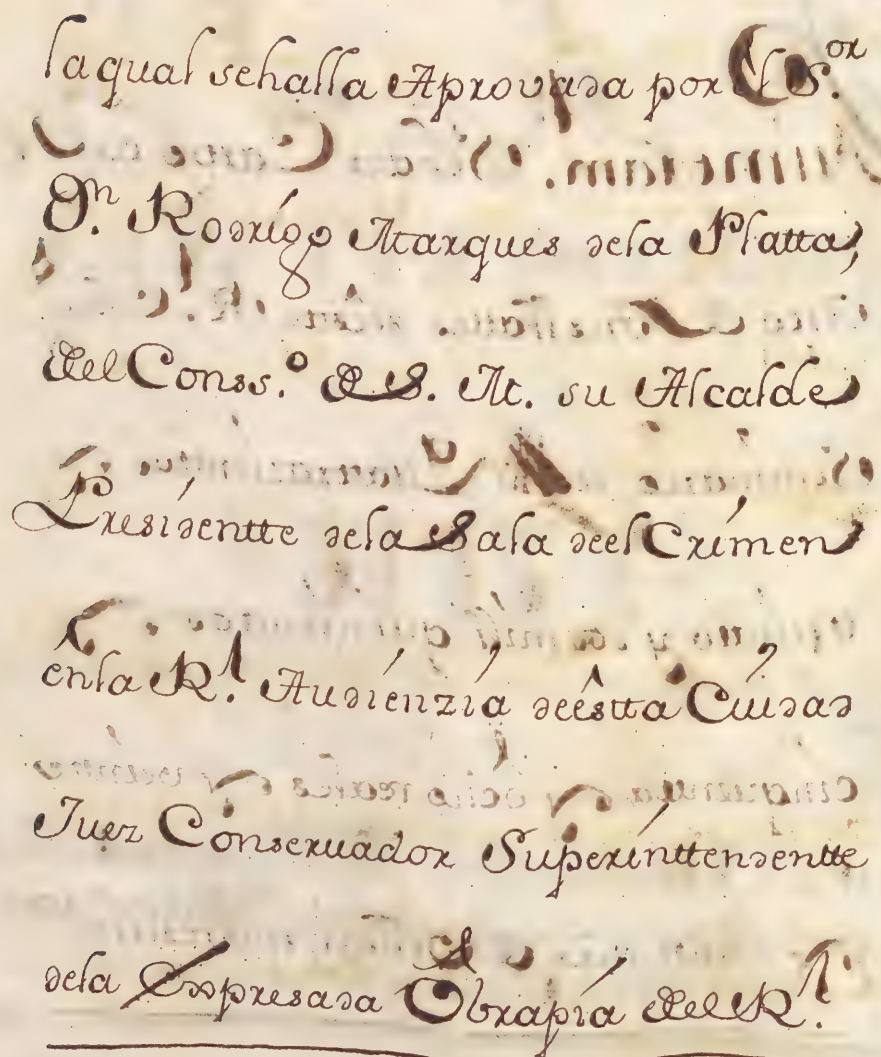 la qual sehalla Aprovada por el S.or
D.n Rodrígo Marques dela Platta,
del Conss.o de S. M. su Alcalde
Presidentte dela Sala deel Crímen
enla R.l Audíenzía deêstta Cíudad
Juez Conseruador Superínttendentte
dela Expresada Obrapía del R.l